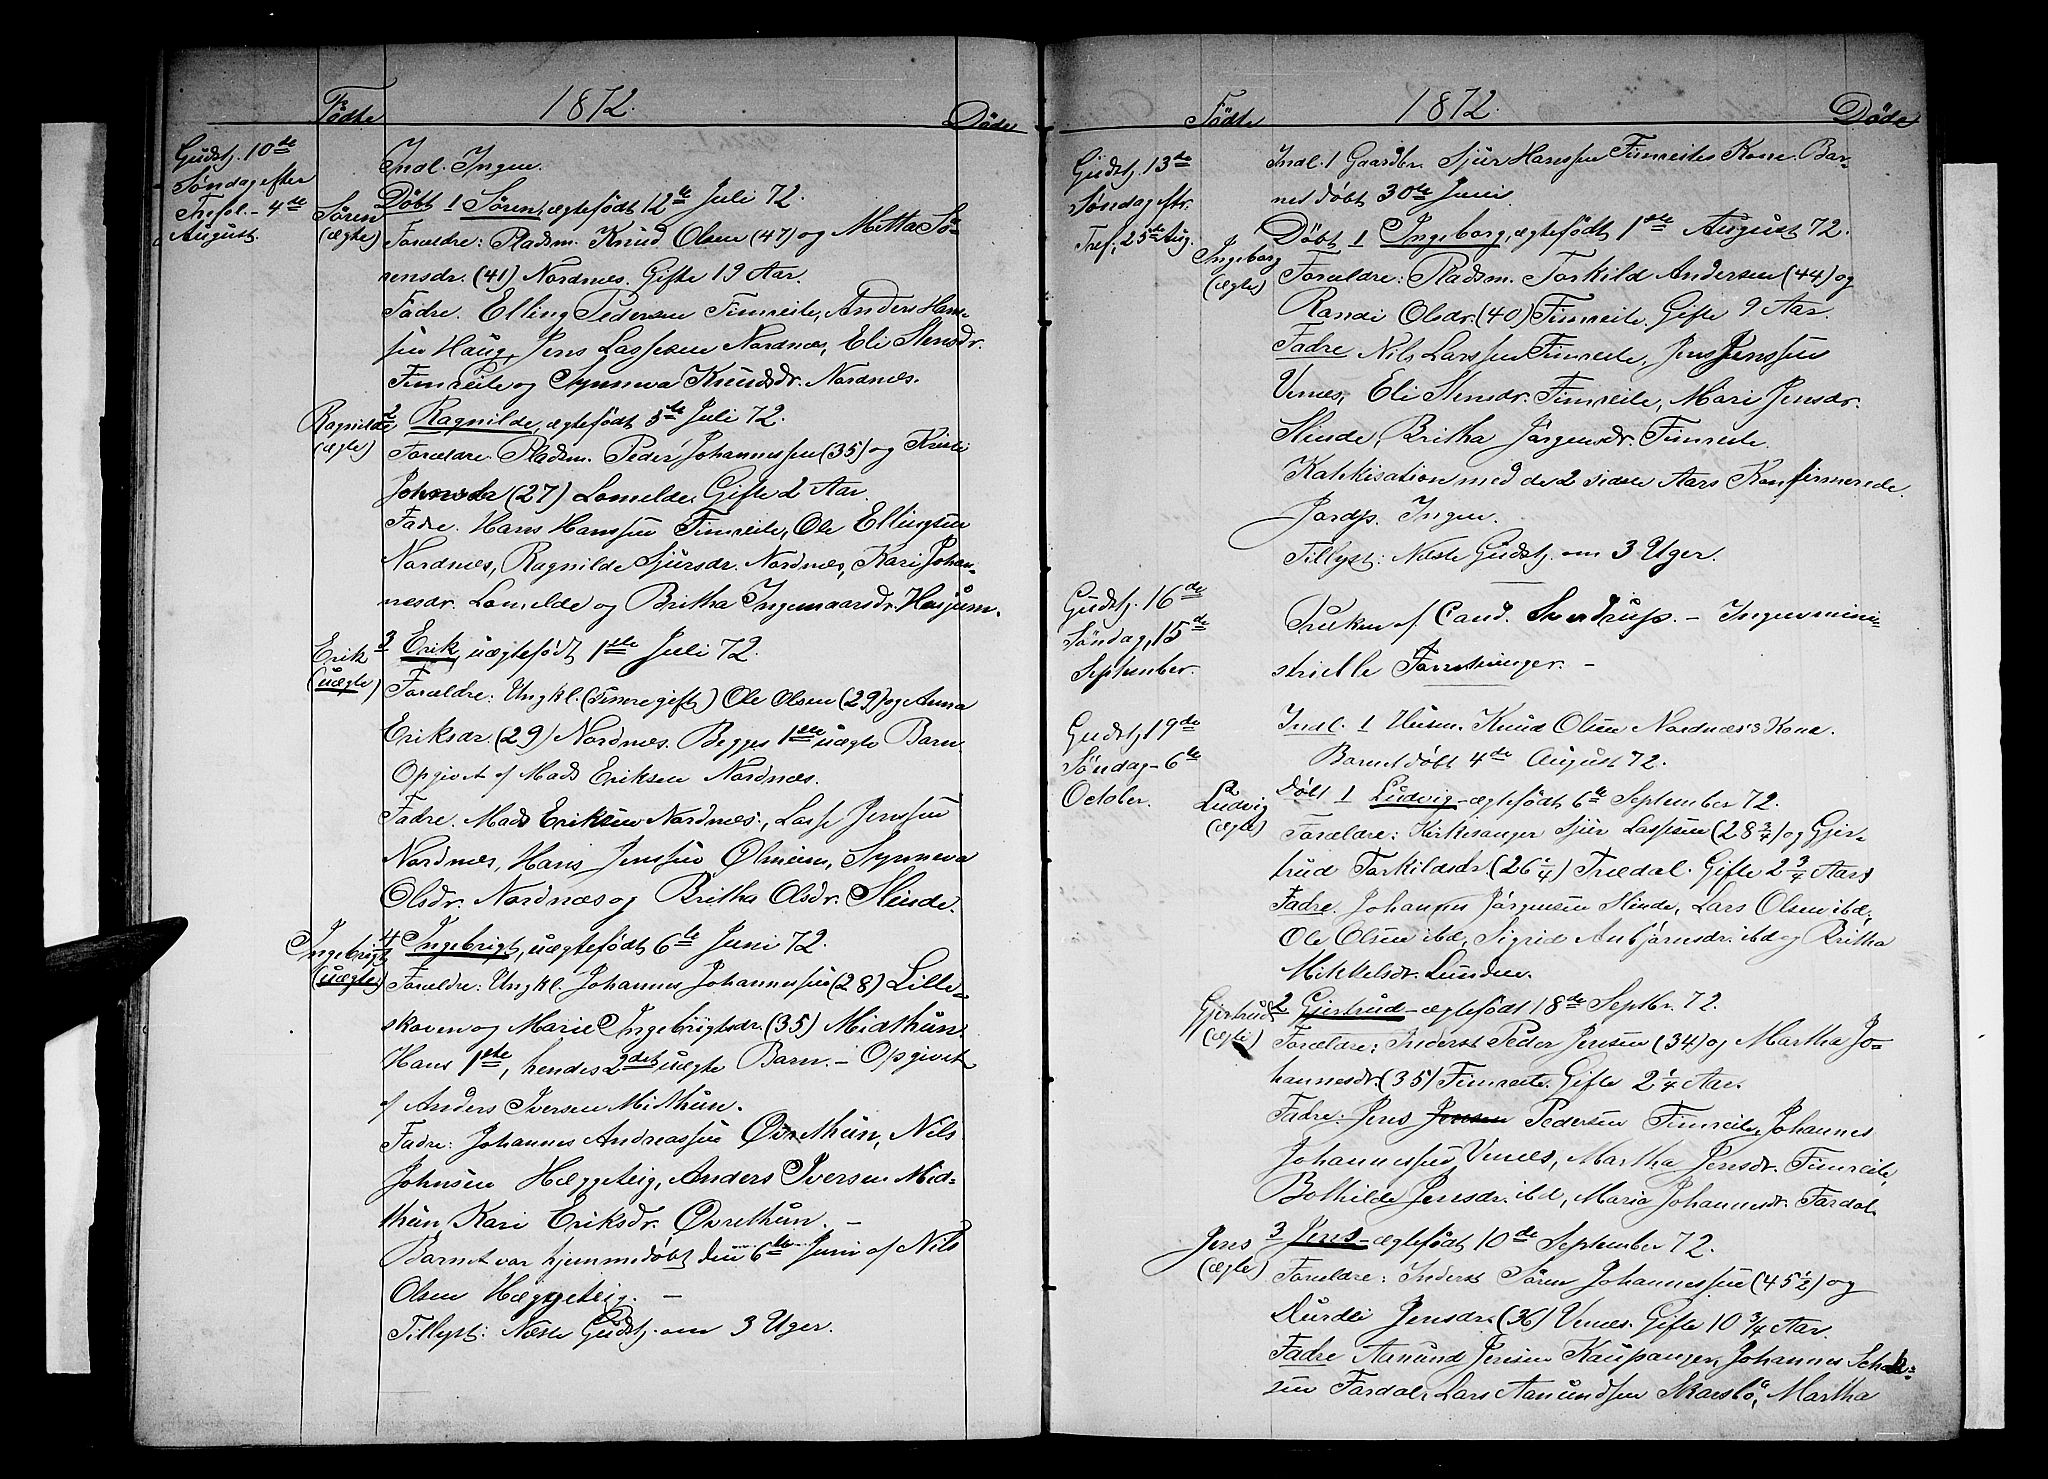 Fødte
1872.
Døde
Gudstj. 10de
Søndag efter
Trefol. - 4de
August.
Indl. Ingen.
Søren
(ægte)
Døbt 1 Søren, ægtefødt 12te Juli 72.
Forældre: Pladsm. Knud Olsen (47) og Metta Sö-
rensdr. (41) Nordnæs. Gifte 19 Aar.
Fadre. Elling Pedersen Fimreite, Anders Hans-
sen Haug, Jens Lassesen Nordnæs, Eli Stensdr.
Fimreite og Synneva Knudsdr. Nordnæs.
Ragnilde
(ægte)
2 Ragnilde, ægtefødt 5te Juli 72.
Forældre. Pladsm. Peder Johannessen (35) og Kristi
Johnsdr (27) Lomelde. Gifte 2 Aar.
Fadre. Hans Hanssen Fimreite, Ole Ellingsen
Nordnæs, Ragnilde Sjursdr. Nordnæs, Kari Johan-
nesdr. Lomelde og Britha Ingemaarsdr.
Erik
(uægte)
3 Erik, uægtefødt 1ste Juli 72.
Forældre: Ungkl. (Timregift) Ole Olsen (29) og Anna
Eriksdr. (29) Nordnæs. Begges 1ste uægte Barn.
Opgivet af Mads Eriksen Nordnæs.
Fadre. Mads Eriksen Nordnæs, Lasse Jenssen
Nordnæs, Hans Jenssen Olmeim, Synneva
Olsdr. Nordnæs og Britha Olsdr. Slinde.
Ingebrigt
(uægte)
4 Ingebrigt, uægtefødt 6te Juni 72.
Forældre: Ungkl. Johannes Johannessen (28) Lille-
skoven og Marie Ingebrigtsdr. (35) Midthun.
Hans 1ste, hendes 2det uægte Barn. - Opgivet
af Anders Iversen Midthun.
Fadre: Johannes Andreassen Øvrethun, Nils
Johnsen Hæggeteig, Anders Iversen Mid-
thun, Kari Eriksdr. Øvrethun. -
Barnet var hjemmedøbt den 6te Juni af Nils
Olsen Hæggeteig. -
Tillyst: Næste Gudstj. om 3 Uger.
Fødte
1872.
Døde
Gudstj. 13de
Søndag eftr.
Tref. 25de Aug.
Indl. 1 Gaardbr. Sjur Hanssen Fimreites Kone. Bar-
net døbt 30te Juni.
Ingeborg
(ægte)
Døbt 1 Ingeborg, ægtefødt 1ste August 72.
Forældre: Pladsm. Torkild Andersen (44) og
Randi Olsdr. (40) Fimreite. Gifte 9 Aar.
Fadre Nils Larssen Fimreite, Jens Jenssen
Venæs, Eli Stensdr. Fimreite, Mari Jensdr.
Slinde, Britha Jörgensdr. Fimreite.
Katekisation med de 2 sidste Aars Konfirmerede.
Jordp. Ingen.
Tillyst: Næste Gudstj. om 3 Uger.
Gudstj. 16de
Søndag, 15de
September.
Præken af Cand. Sverdrup. - Ingen mini-
strielle Forretninger. -
Gudstj. 19de
Søndag - 6te
October.
Indl. 1 Husm. Knud Olsen Nordnæs's Kone.
Barnet döbt 4de August 72.
Ludvig
(ægte)
Döbt 1 Ludvig - ægtefødt 6te September 72.
Forældre: Kirkesanger Sjur Lassesen (28 3/4) og Gjer-
trud Torkildsdr. (26 1/4) Trædal. Gifte 2 3/4 Aars
Fadre. Johannes Jörgensen Slinde, Lars Olsen ibd,
Ole Olsen ibd, Sigrid Anbjörnsdr. ibd og Britha
Mikkelsdr. Lunden.
Gjertrud
(ægte)
2 Gjertrud - ægtefødt 18de Septbr. 72.
Forældre: Inderst Peder Jensen (34) og Martha Jo-
hannesdr. (35) Fimreite. Gifte 2 1/4 Aar.
Fadre: Jens Jensen Pedersen Fimreite, Johannes
Johannessen Venæs, Martha Jensdr. Fimreite,
Bothilde Jensdr. ibd, Maria Johannesdr. Fardal.
Jens
(ægte)
3 Jens - ægtefødt 10de September 72.
Forældre: Inderst Sören Johannessen (45 1/2) og
Durdei Jensdr. (36) Venæs. Gifte 10 3/4 Aar.
Fadre Aamund Jensen Kaupanger, Johannes
sen Fardal, Lars Aamundsen Skarsbö, Martha